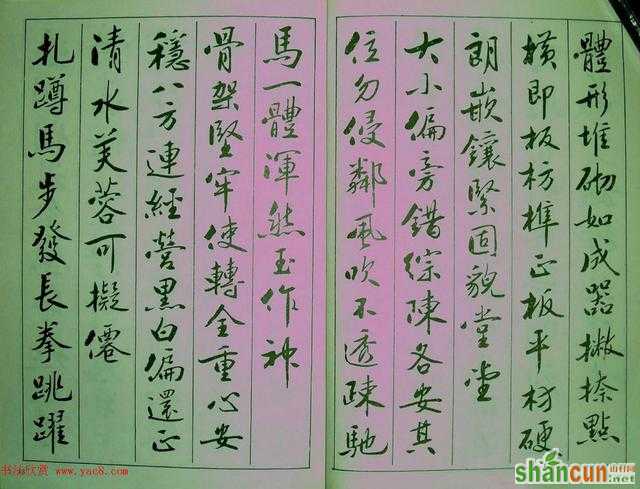 體形堆砌如成器撇捺點
橫即板枋榫正板平材硬
朗嵌鑲緊固貌堂堂
大小偏旁錯綜陳各安其
位勿侵鄰風吹不透疎馳
馬一體渾然玉作神
骨架堅牢使轉全重心安
穩八方連經營黑白偏還正
清水芙蓉可擬僊
扎蹲馬步發長拳跳躍
书法欣赏 www.yac8.com
shancun
山村网
.net